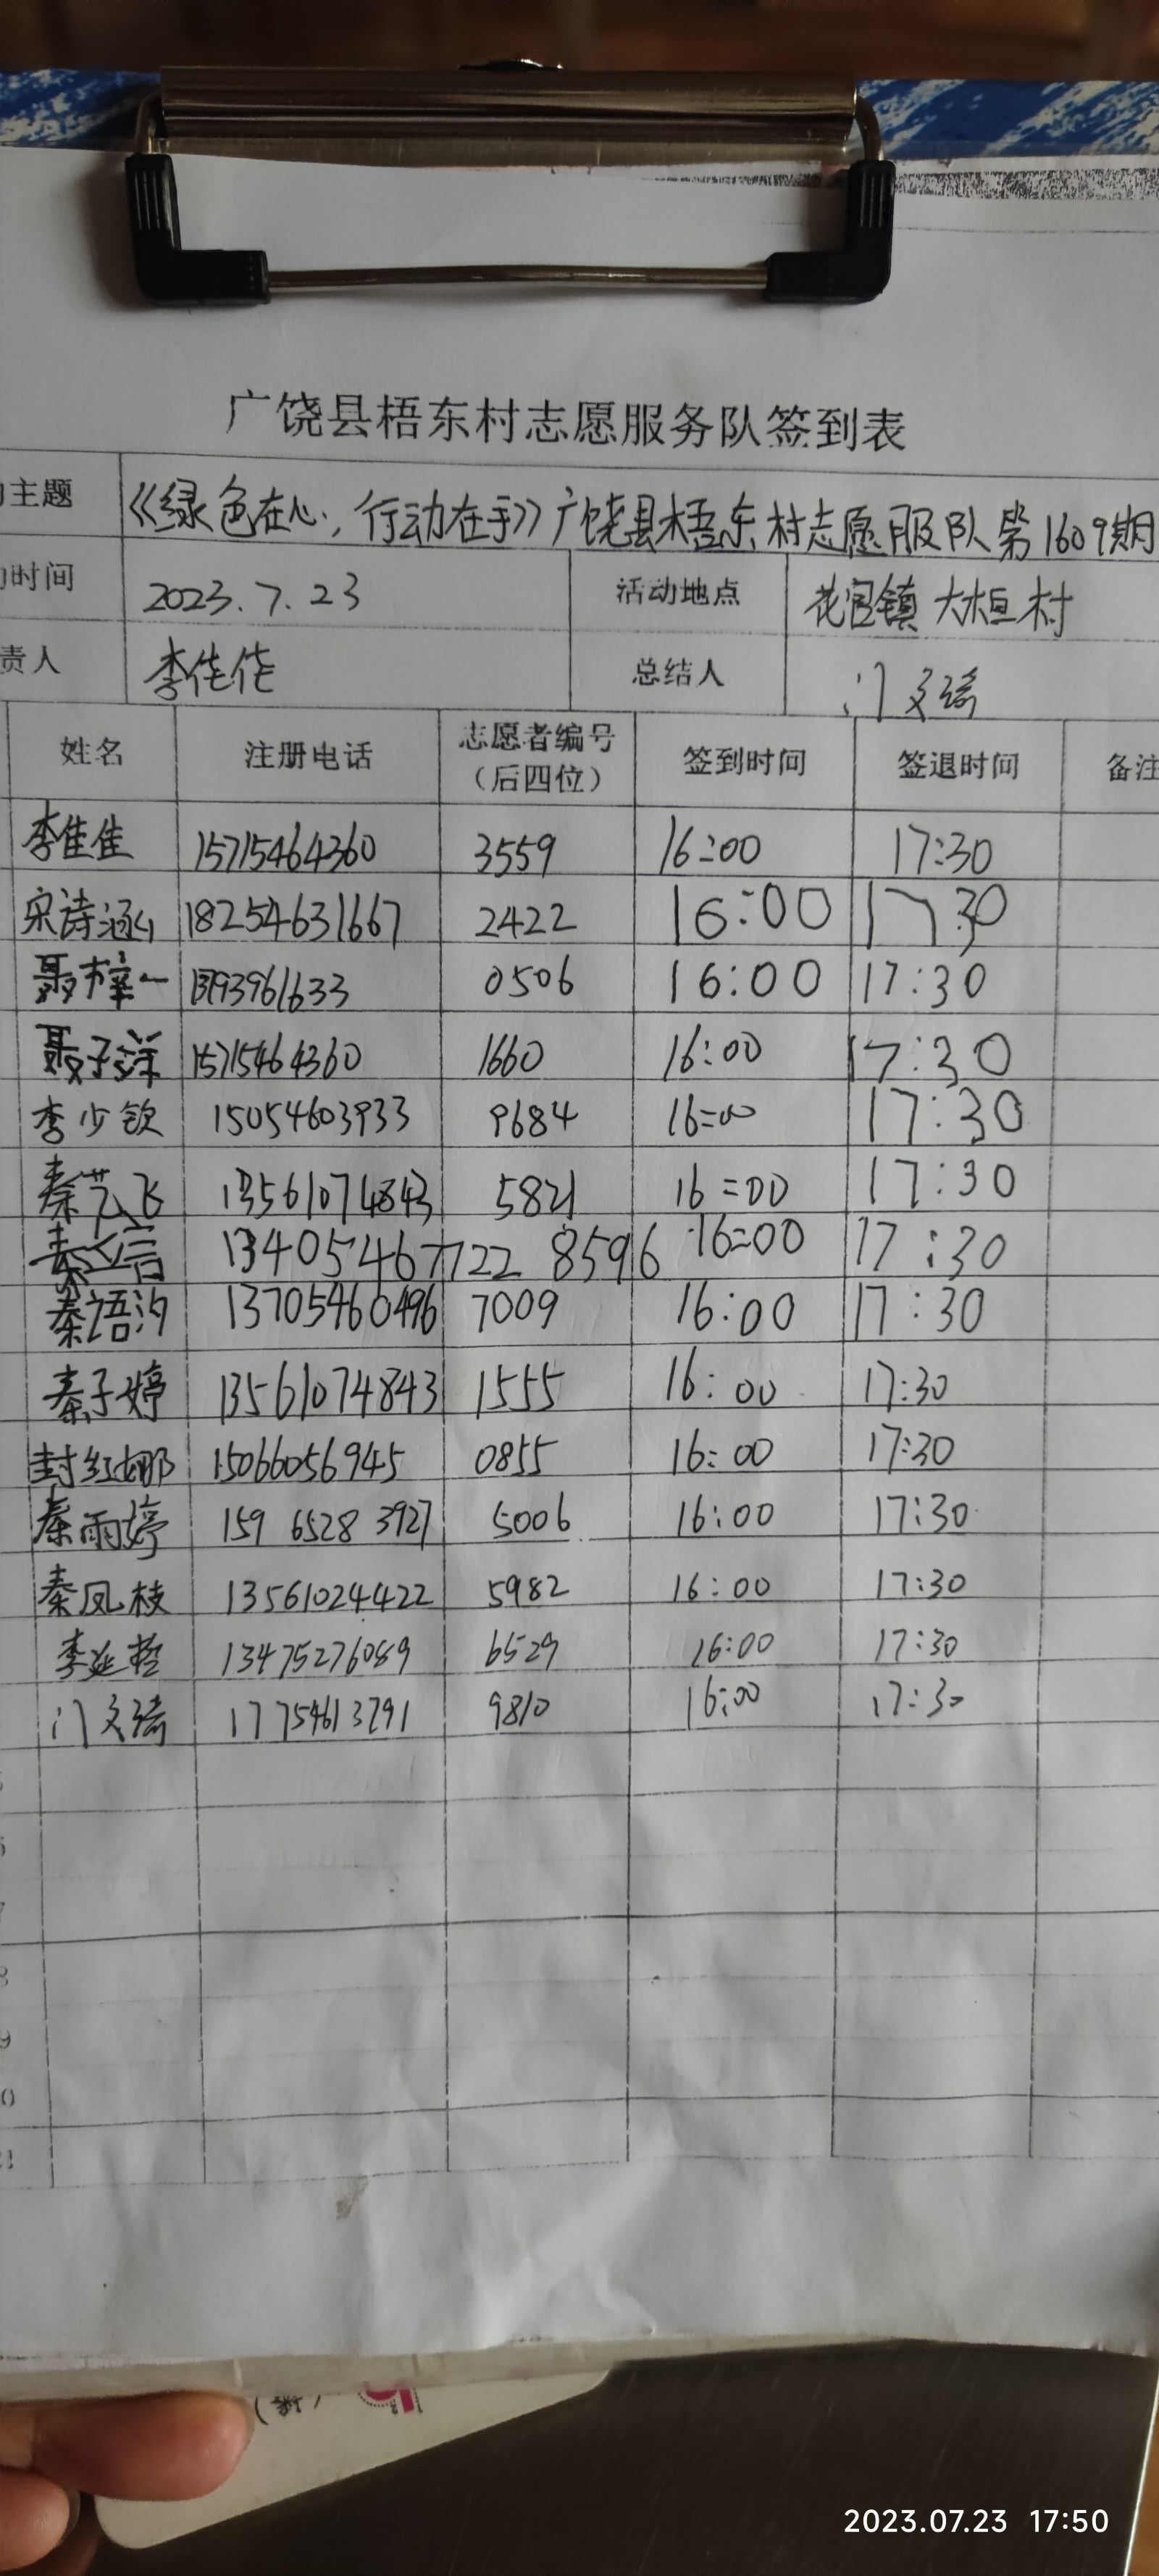 广饶县梧东村志愿服务队签到表
主题 《绿色在心，行动在手》广饶县梧东村志愿服队第1609期
时间 2023.7.23 活动地点 花官镇 大桓村
责人 李佳佳 总结人 门文瑶
姓名 注册电话 志愿者编号（后四位） 签到时间 签退时间 备注
李佳佳 15715464360 3559 16:00 17:30
宋诗涵 18254631667 2422 16:00 17:30
聂梓一 13793961633 0506 16:00 17:30
聂子洋 15715464360 1660 16:00 17:30
李少钦 15054603933 9684 16:00 17:30
秦艺飞 13561074843 5821 16:00 17:30
秦立言 13405467722 8596 16:00 17:30
秦语汐 13705460496 7009 16:00 17:30
秦子婷 13561074843 1555 16:00 17:30
封红娜 15066056945 0855 16:00 17:30
秦雨婷 159 6528 3927 5006 16:00 17:30
秦凤枝 13561024422 5982 16:00 17:30
李延哲 13475276089 6529 16:00 17:30
门文瑶 17754613791 9810 16:00 17:30
7
8
9
0
2023.07.23 17:50